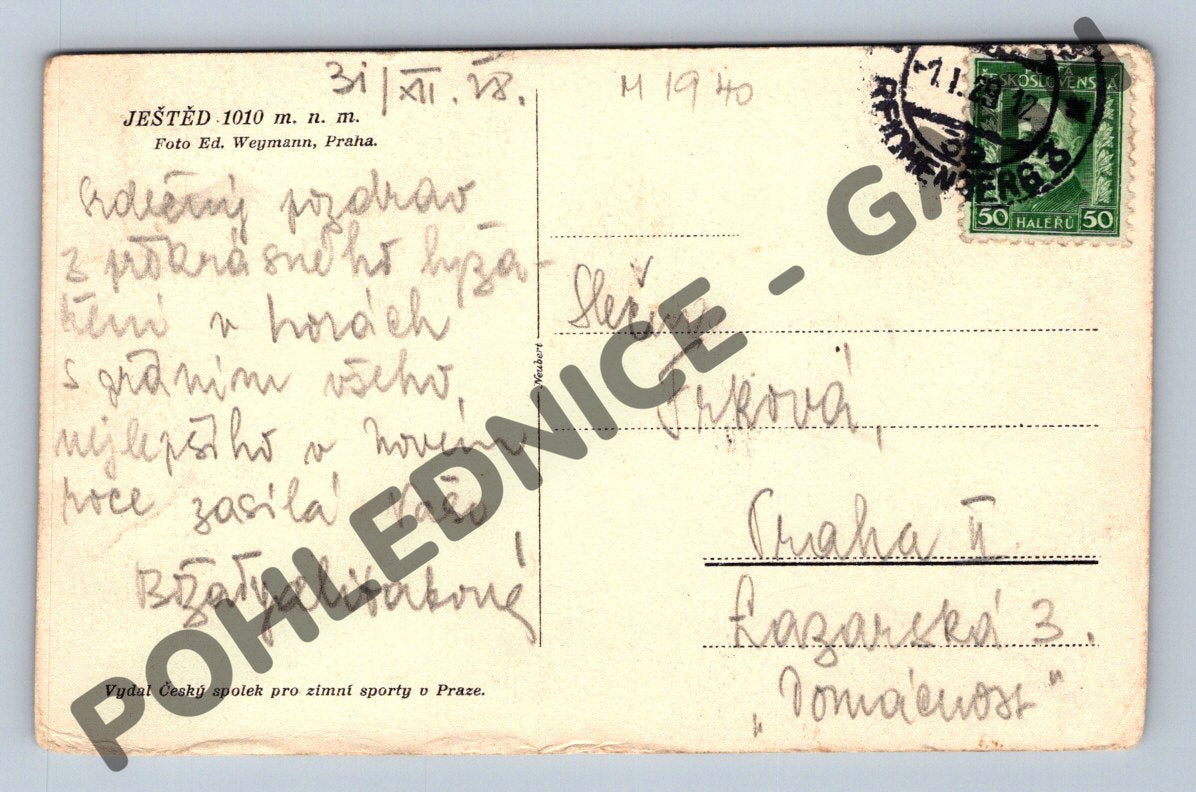 31/XII. 28.
M 1940
JEŠTĚD 1010 m. n. m.
Foto Ed. Weymann, Praha.
Srdečný pozdrav
z překrásného lyžo-
vání v horách
s přáním všeho
nejlepšího v novém
roce zasílá Vaše
Neubert
ČESKOSLOVENSKÁ
-1.I.29.12
REICHENBERG 3
50 HALÉŘŮ 50
Slečny
Trková,
Praha II
Lazarská 3.
„Domácnost"
Vydal Český spolek pro zimní sporty v Praze.
POHLEDNICE - GA